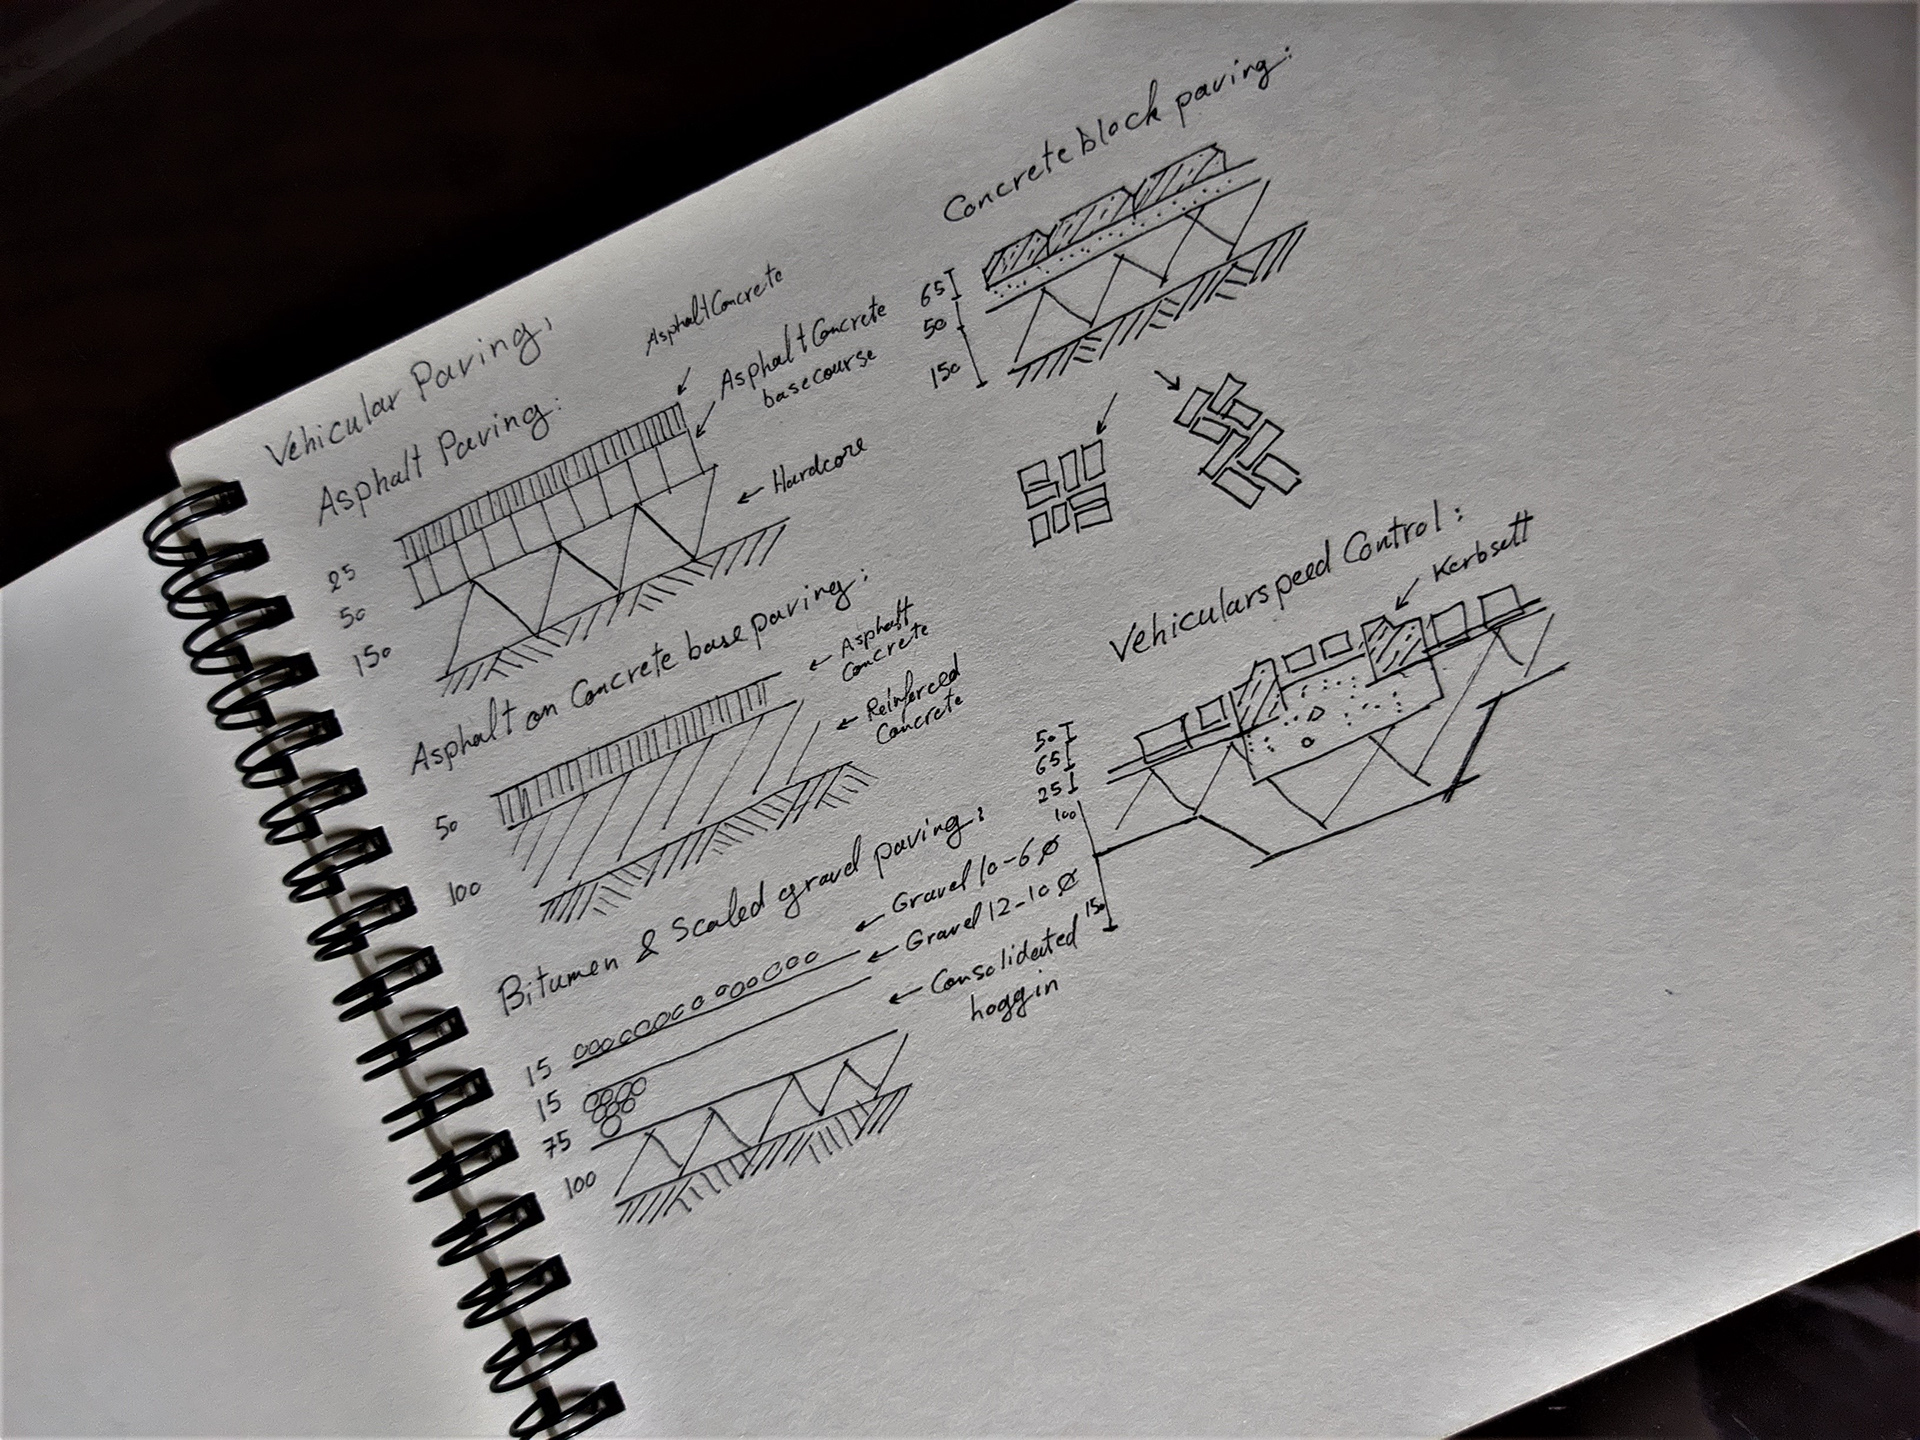 Vehicular Paving,
Asphalt Paving:
Asphalt Concrete
Asphalt Concrete
basecourse
Hardcore
25
50
150
Asphalt on Concrete base paving:
Asphalt
Concrete
Reinforced
Concrete
50
100
Bitumen & Scaled gravel paving:
Gravel 10-6 Ø
Gravel 12-10 Ø
Consolidated
hoggin
15
15
75
100
Concrete block paving:
65
50
150
Vehicular speed Control:
Kerb sett
50
65
25
100
150